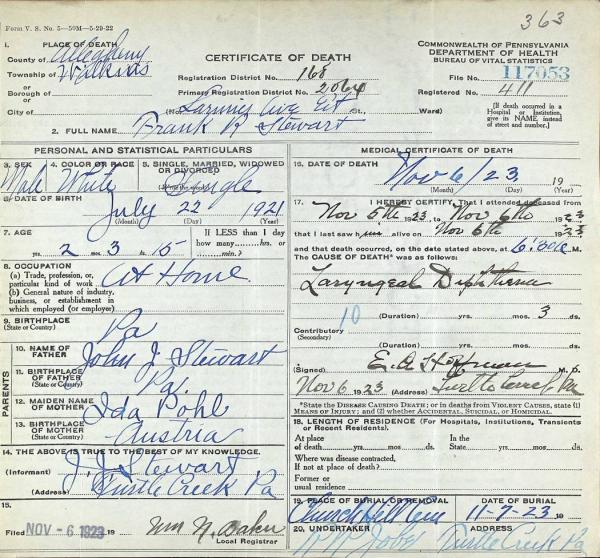 Form V. S. No. 5—50M—5-29-22
363
1. PLACE OF DEATH
County of Allegheny
Township of Wilkins
or
Borough of
or
City of
CERTIFICATE OF DEATH
Registration District No. 168
Primary Registration District No. 2064
(No. Larimer Ave Ext St., Ward)
COMMONWEALTH OF PENNSYLVANIA
DEPARTMENT OF HEALTH
BUREAU OF VITAL STATISTICS
File No. 117053
Registered No. 411
[If death occurred in a Hospital or Institution, give its NAME, instead of street and number.]
2. FULL NAME Frank R Stewart
PERSONAL AND STATISTICAL PARTICULARS
3. SEX 4. COLOR OR RACE 5. SINGLE, MARRIED, WIDOWED OR DIVORCED
Male White Single
6. DATE OF BIRTH
July 22 1921
(Month) (Day) (Year)
7. AGE If LESS than 1 day how many hrs. or min.?
2 yrs. 3 mos. 15 ds.
8. OCCUPATION
(a) Trade, profession, or, particular kind of work At Home
(b) General nature of industry, business, or establishment in which employed (or employee)
9. BIRTHPLACE
(State or County) Pa
PARENTS
10. NAME OF FATHER John J Stewart
11. BIRTHPLACE OF FATHER Pa.
(State or County)
12. MAIDEN NAME OF MOTHER Ida Pohl
13. BIRTHPLACE OF MOTHER Austria
(State or County)
14. THE ABOVE IS TRUE TO THE BEST OF MY KNOWLEDGE.
(Informant) J. J. Stewart
(Address) Turtle Creek Pa
15.
Filed NOV - 6 1923 19 Wm N. Baker
Local Registrar
MEDICAL CERTIFICATE OF DEATH
16. DATE OF DEATH
Nov 6/23 19
(Month) (Day) (Year)
17. I HEREBY CERTIFY, That I attended deceased from
Nov 5th 1923 to Nov 6th 1923
that I last saw h alive on Nov 6th 1923
and that death occurred, on the date stated above, at M.
The CAUSE OF DEATH* was as follows:
Laryngeal Diphtheria
10
(Duration) yrs. mos. 3 ds.
Contributory
(Secondary)
(Duration) yrs. mos. ds.
(Signed) E. A. Hoffman M. D.
Nov 6 1923 (Address) Turtle Creek Pa
*State the DISEASE CAUSING DEATH; or in deaths from VIOLENT CAUSES, state (1) MEANS OF INJURY; and (2) whether ACCIDENTAL, SUICIDAL, or HOMICIDAL.
18. LENGTH OF RESIDENCE (For Hospitals, Institutions, Transients or Recent Residents).
At place of death yrs. mos. ds. In the State yrs. mos. ds.
Where was disease contracted, If not at place of death?
Former or usual residence
19. PLACE OF BURIAL OR REMOVAL DATE OF BURIAL
Church Hill Cem 11-7-23
20. UNDERTAKER ADDRESS
Turtle Creek Pa